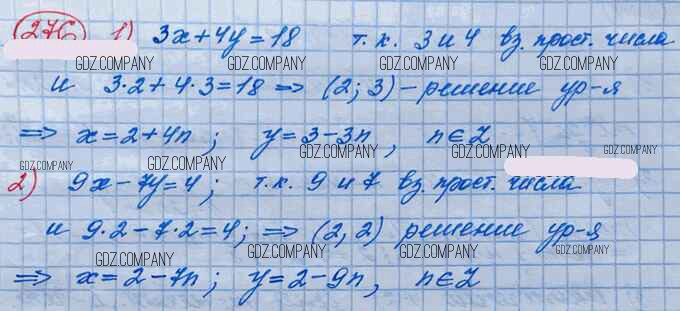 276 1) 3x+4y=18 т.к. 3 и 4 вз. прост. числа
GDZ.COMPANY GDZ.COMPANY GDZ.COMPANY GDZ.COMPANY
и 3·2+4·3=18 => (2; 3) – решение ур-я
=> x=2+4n; y=3-3n, n∈Z
GDZ.COMPANY GDZ.COMPANY GDZ.COMPANY GDZ.COMPANY GDZ.COMPANY
2) 9x-7y=4; т.к. 9 и 7 вз. прост. числа
и 9·2-7·2=4; => (2, 2) решение ур-я
GDZ.COMPANY GDZ.COMPANY GDZ.COMPANY GDZ.COMPANY
=> x=2-7n; y=2-9n, n∈Z